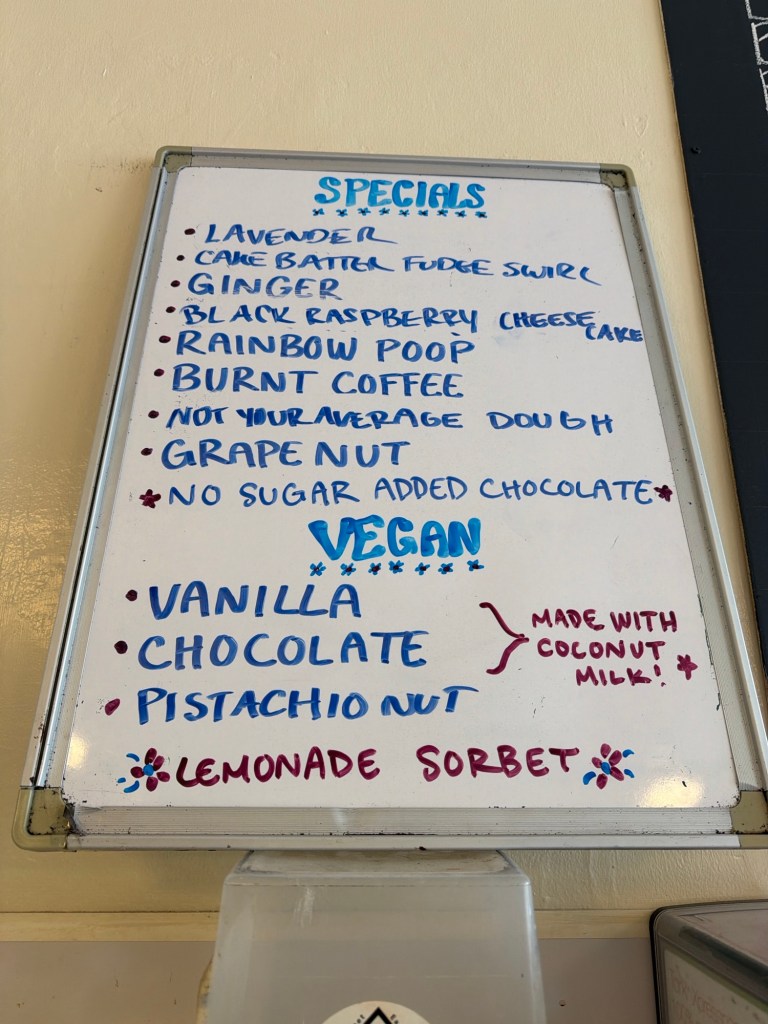 SPECIALS
• LAVENDER
• CAKE BATTER FUDGE SWIRL
• GINGER
• BLACK RASPBERRY CHEESE CAKE
• RAINBOW POOP
• BURNT COFFEE
• NOT YOUR AVERAGE DOUGH
• GRAPE NUT
* NO SUGAR ADDED CHOCOLATE *
VEGAN
• VANILLA
• CHOCOLATE
• PISTACHIO NUT
MADE WITH
COCONUT
MILK! *
LEMONADE SORBET